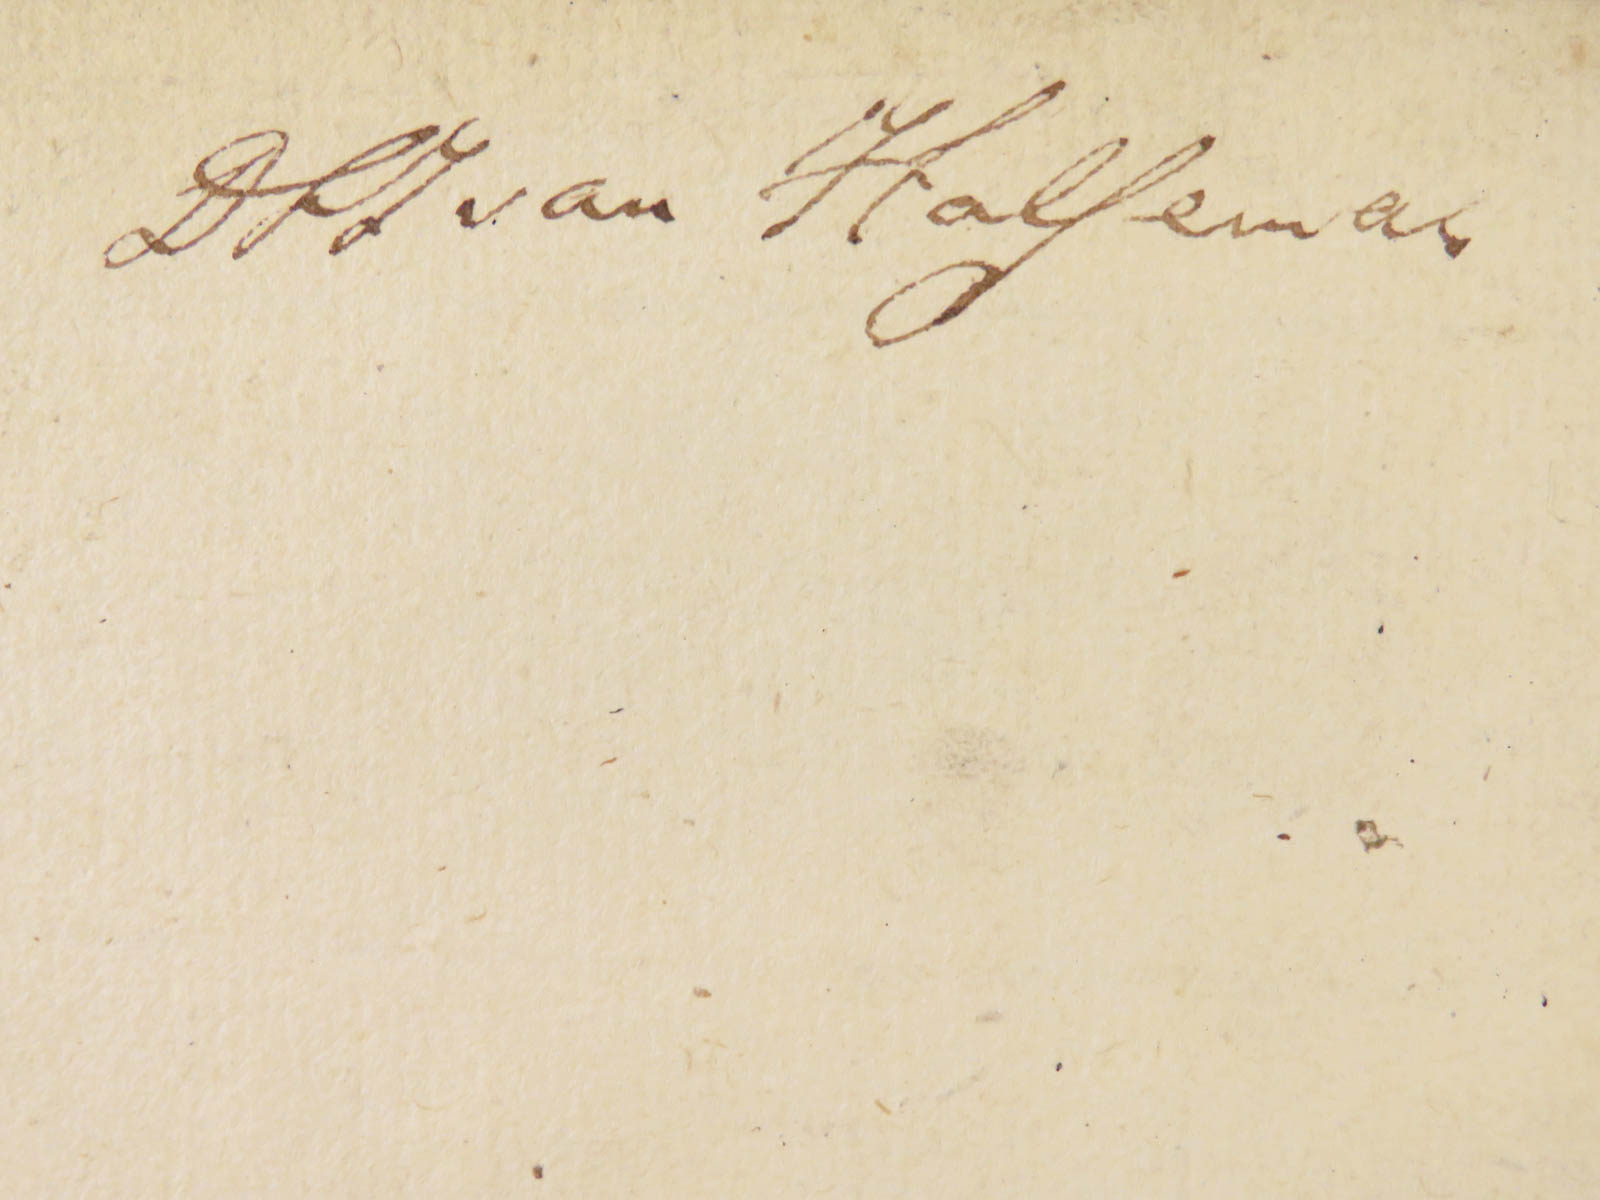 DFJ van Halsema